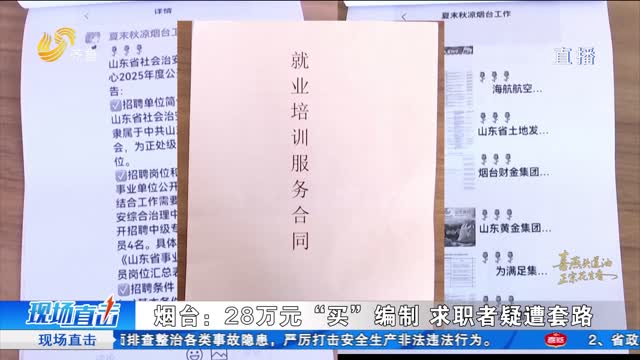 详情
山东省社会治安
心2025年度公
告:
招聘单位简
山东省社会治安
隶属于中共山
会,为正处级
位。
招聘岗位和
事业单位公开
结合工作需要
安综合治理中
开招聘中级专
员4名。具体
《山东省事业
员岗位汇总表
招聘条件
就业培训服务合同
夏末秋凉烟台工作
直播
海航航空...
山东省土地发...
烟台财金集团...
山东黄金集团...
为满足集...
喜燕头道油
正宗花生香
现场直击
烟台:28万元“买”编制 求职者疑遭套路
现场直击
排查整治各类事故隐患,严厉打击安全生产非法违法行为。
2、省政